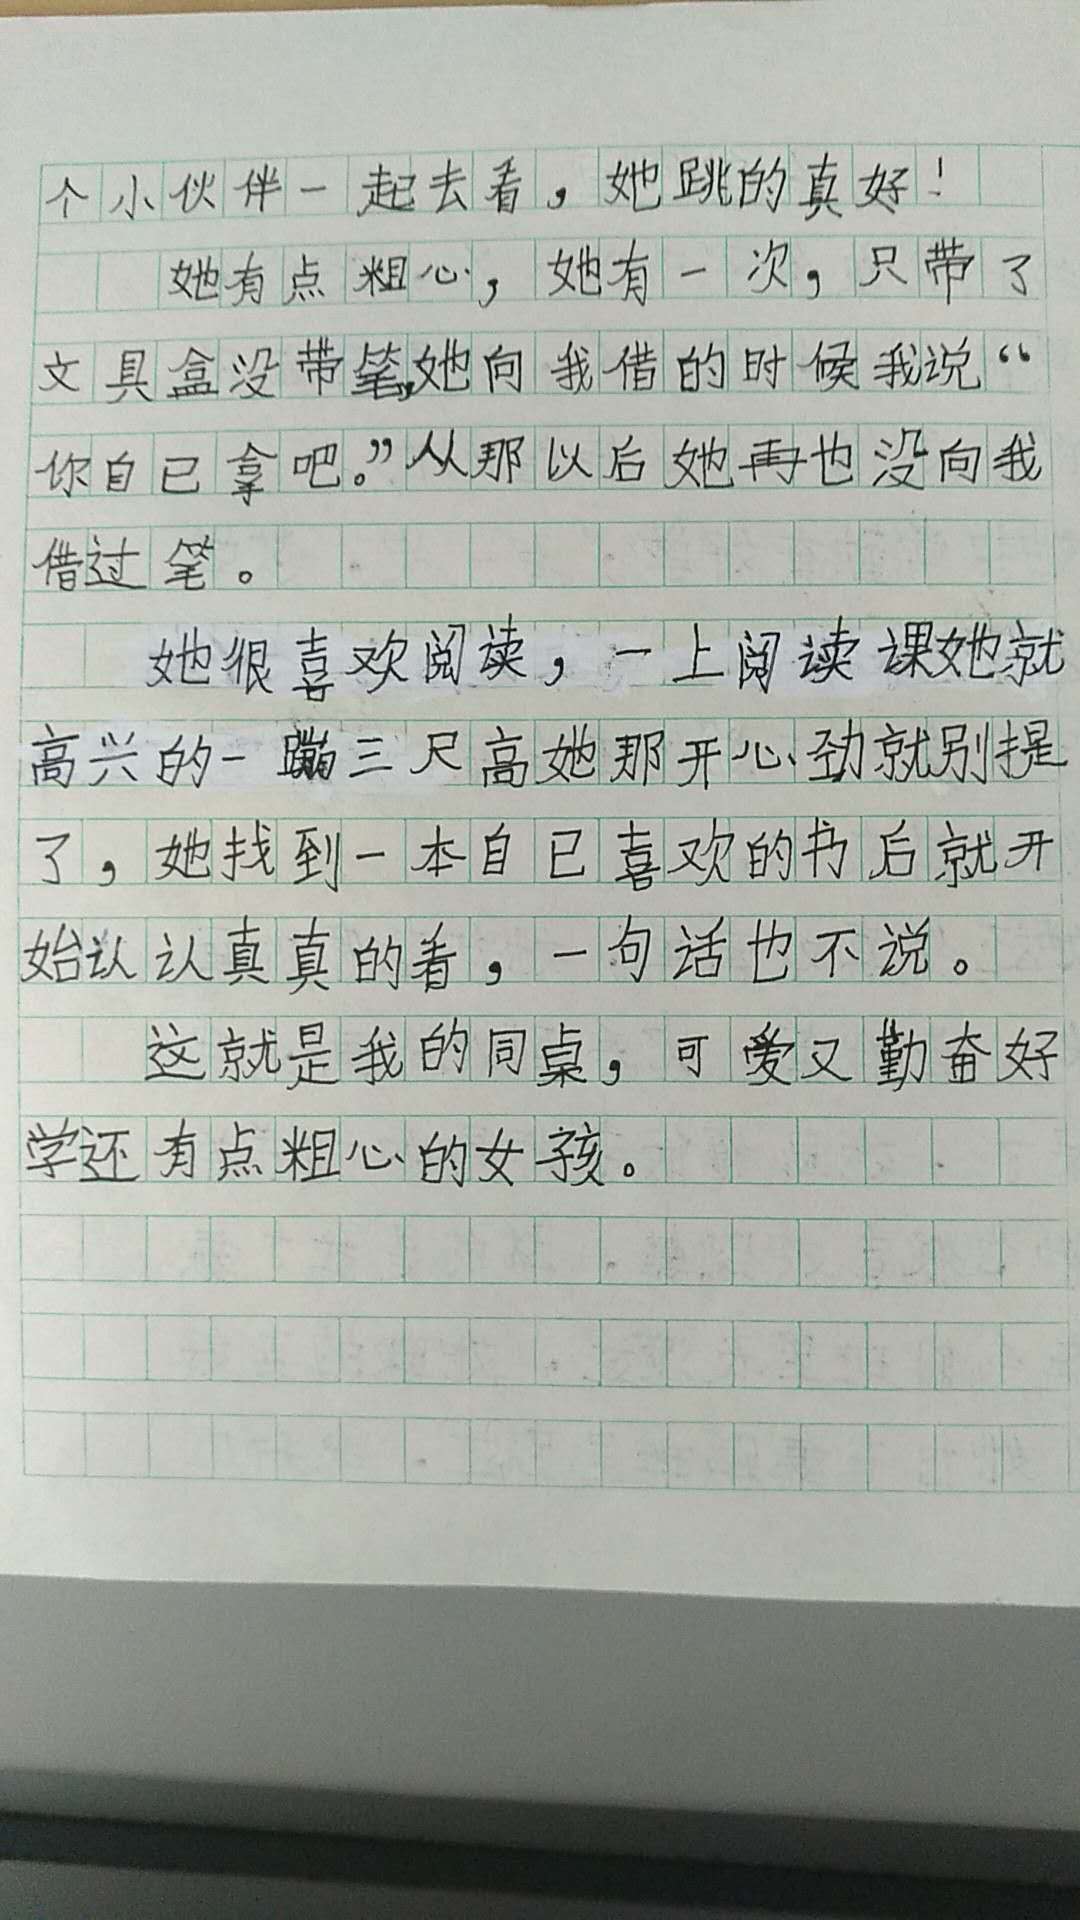 个小伙伴一起去看，她跳的真好！
她有点粗心，她有一次，只带了
文具盒没带笔，她向我借的时候我说“
你自已拿吧。”从那以后她再也没向我
借过笔。
她很喜欢阅读，一上阅读课她就
高兴的一蹦三尺高她那开心劲就别提
了，她找到一本自已喜欢的书后就开
始认认真真的看，一句话也不说。
这就是我的同桌，可爱又勤奋好
学还有点粗心的女孩。